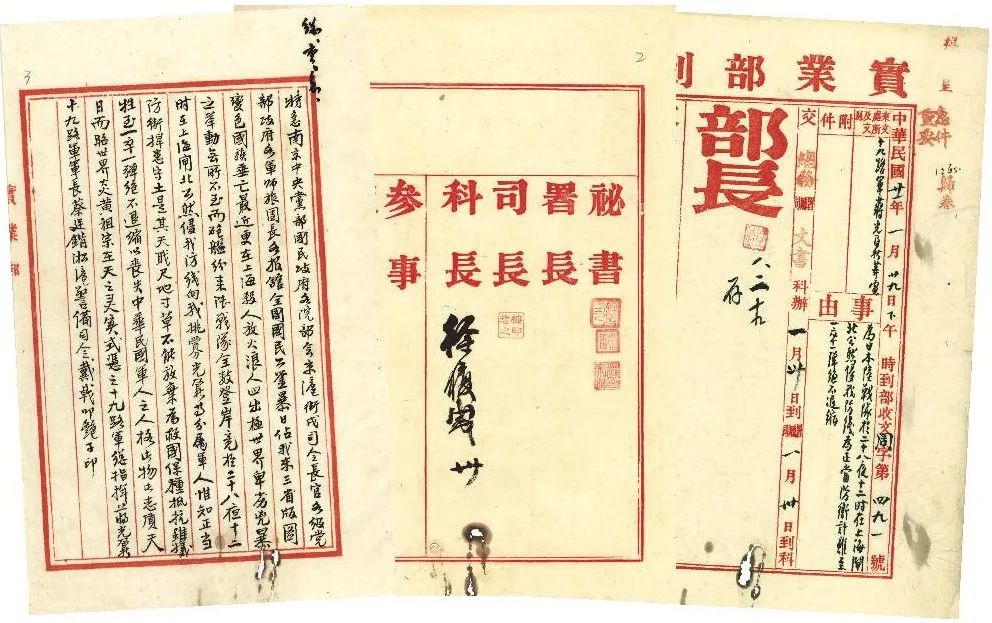 實業部
急件
重要
歸卷
中華民國廿一年一月廿九日下午 時到部收文 字第四九一號
十九路軍蔣光鼐
附件
事由
爲日本陸戰隊於二十八夜十二時在上海閘
北公然侵我防線爲正當防衛計雖至
一卒一彈絕不退縮
交
文書
科辦
一月卅日到
一月卅日到科
部長
存
2
祕書
署長
司長
科長
參事
徐
卅
3
特急南京中央黨部國民政府各院部會京滬衛戍司令長官各級黨
部政府各軍師旅團長各報館全國國民公鑒暴日佔我東三省版圖
變色國族垂亡最近更在上海殺人放火浪人四出極世界卑劣兇暴
之舉動無所不至而砲艦紛來陸戰隊全數登岸竟於二十八夜十二
時在上海閘北公然侵我防線向我挑釁光鼐等分屬軍人惟知正當
防衛捍患守土是其天職尺地寸草不能放棄爲救國保種抵抗雖犧
牲至一卒一彈絕不退縮以喪失中華民國軍人之人格此物此志質天
日而昭世界炎黃祖宗在天之靈實式憑之十九路軍總指揮蔣光鼐
十九路軍軍長蔡廷鍇淞滬警備司令戴戟叩艷子印
實業部